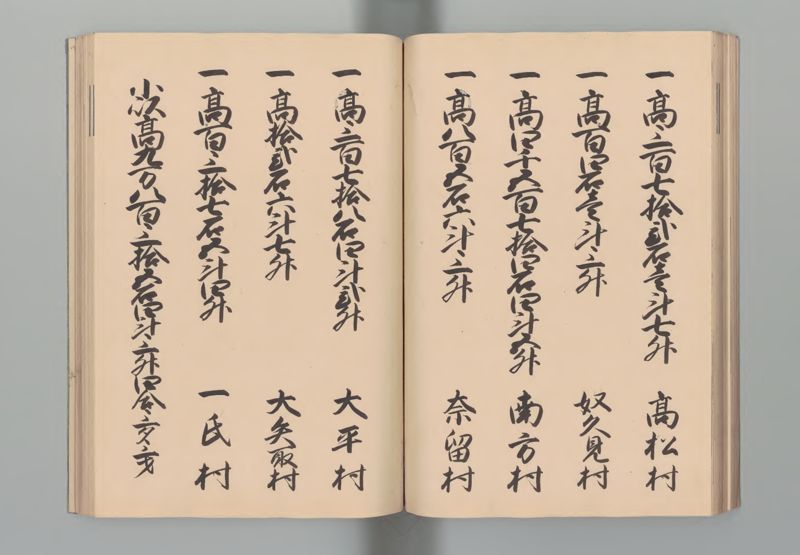 一高三百七拾弐石壱斗七升 高松村
一高百四石壱斗三升 奴久見村
一高四千五百七拾四石四斗五升 南方村
一高八百五石六斗三升 奈留村
一高三百七拾八石四斗弐升 大平村
一高拾弐石六斗七升 大矢取村
一高百三拾七石五斗四升 一氏村
小以高九万八百三拾五石四斗三升四合三夕三才